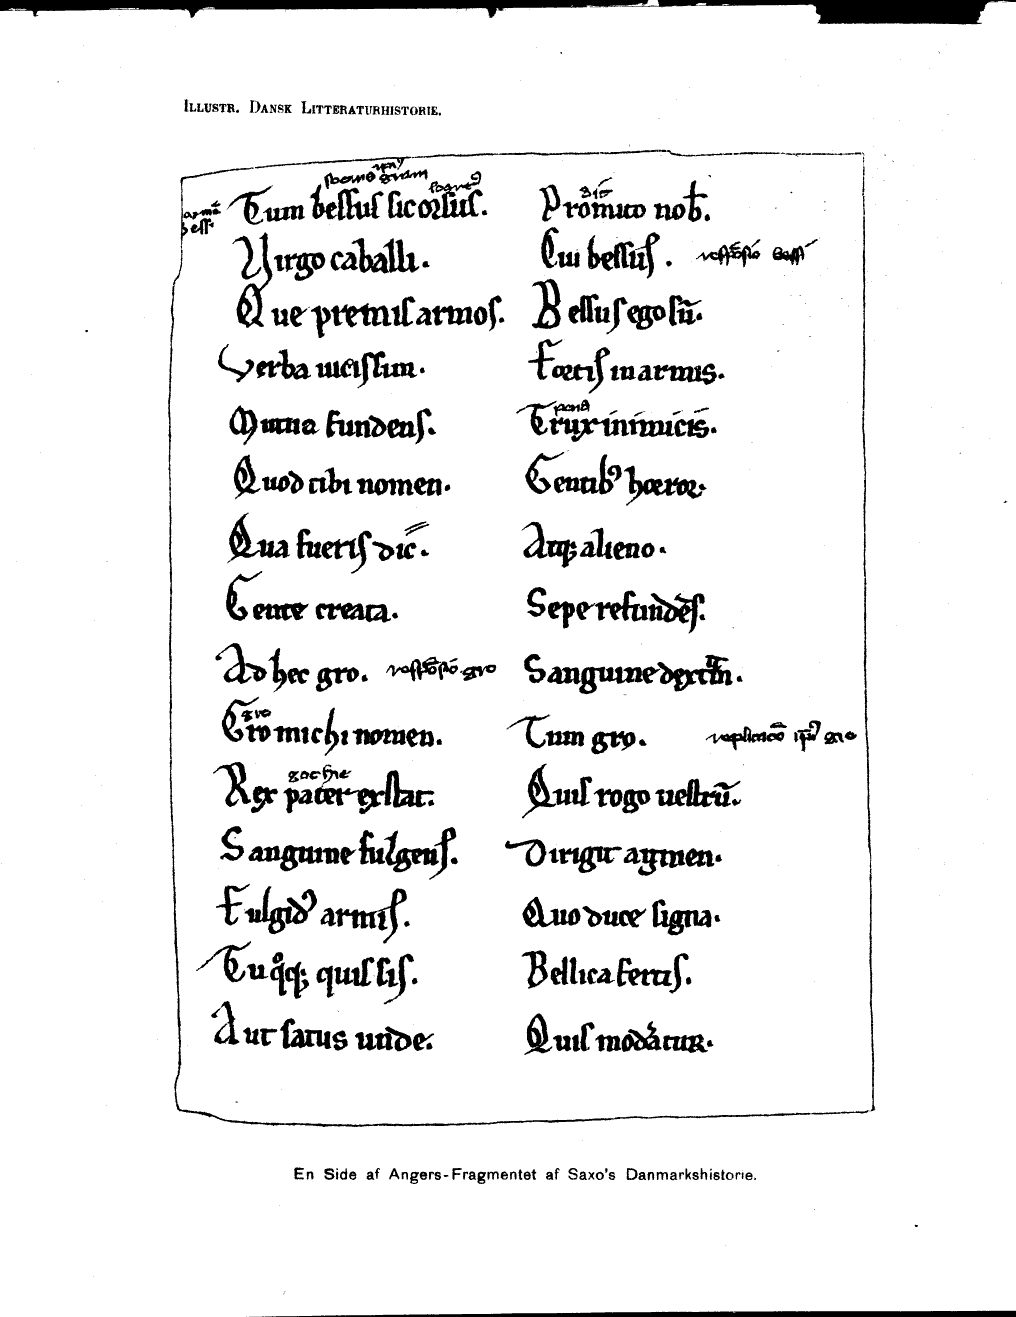 ILLUSTR. DANSK LITTERATURHISTORIE.
Tum bessus sic orsus.
Uirgo caballi.
Que premis armos.
Verba uicissim.
Mutua fundens.
Quod tibi nomen.
Qua fueris dic.
Gente creata.
Ad hec gro.
Gro michi nomen.
Rex pater exstat.
Sanguine fulgens.
Fulgid᷒ armis.
Tu qͦq; quis sis.
Aut satus unde.
Promito nob̄.
Cui bessus.
Bessus ego sū.
Fortis in armis.
Trux inimicis.
Gentib᷒ horror.
Atq; alieno.
Sepe refundēs.
Sanguine dextrā.
Tum gro.
Quis rogo uestrū.
Dirigit agmen.
Quo duce signa.
Bellica fertis.
Quis modatur.
En Side af Angers-Fragmentet af Saxo's Danmarkshistorie.